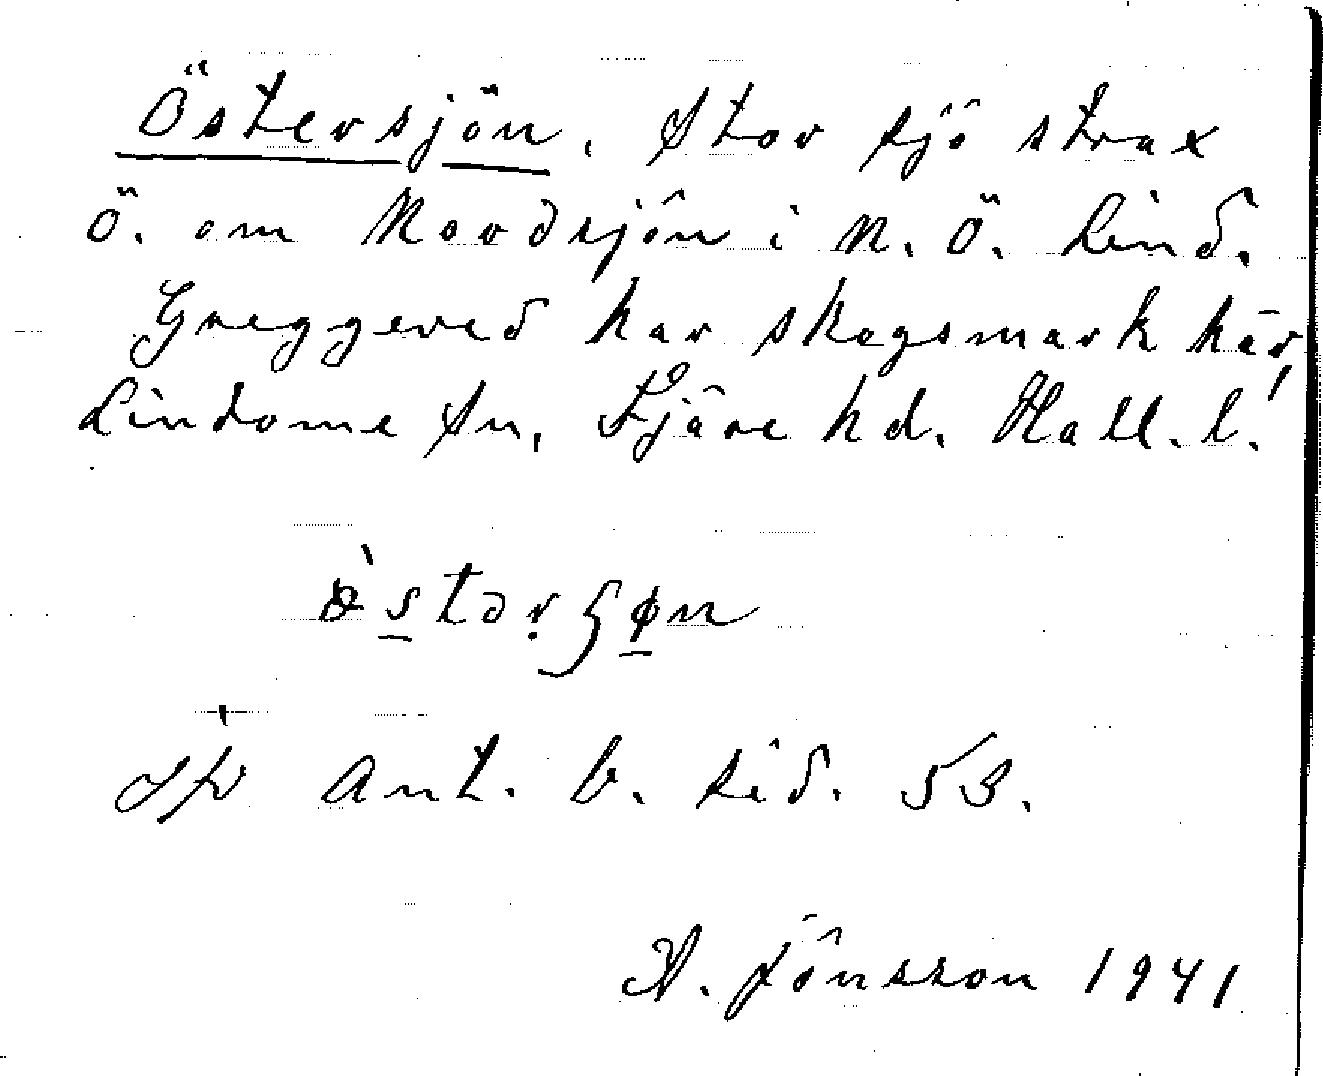 Östersjön. Stor sjö strax
Ö. om Nordsjön i N. Ö. Lind.
Greggered har skogsmark här,
Lindome Sn, Fjäre hd. Hall. l.
Ant. b. sid. 53.
A. Jönsson 1941